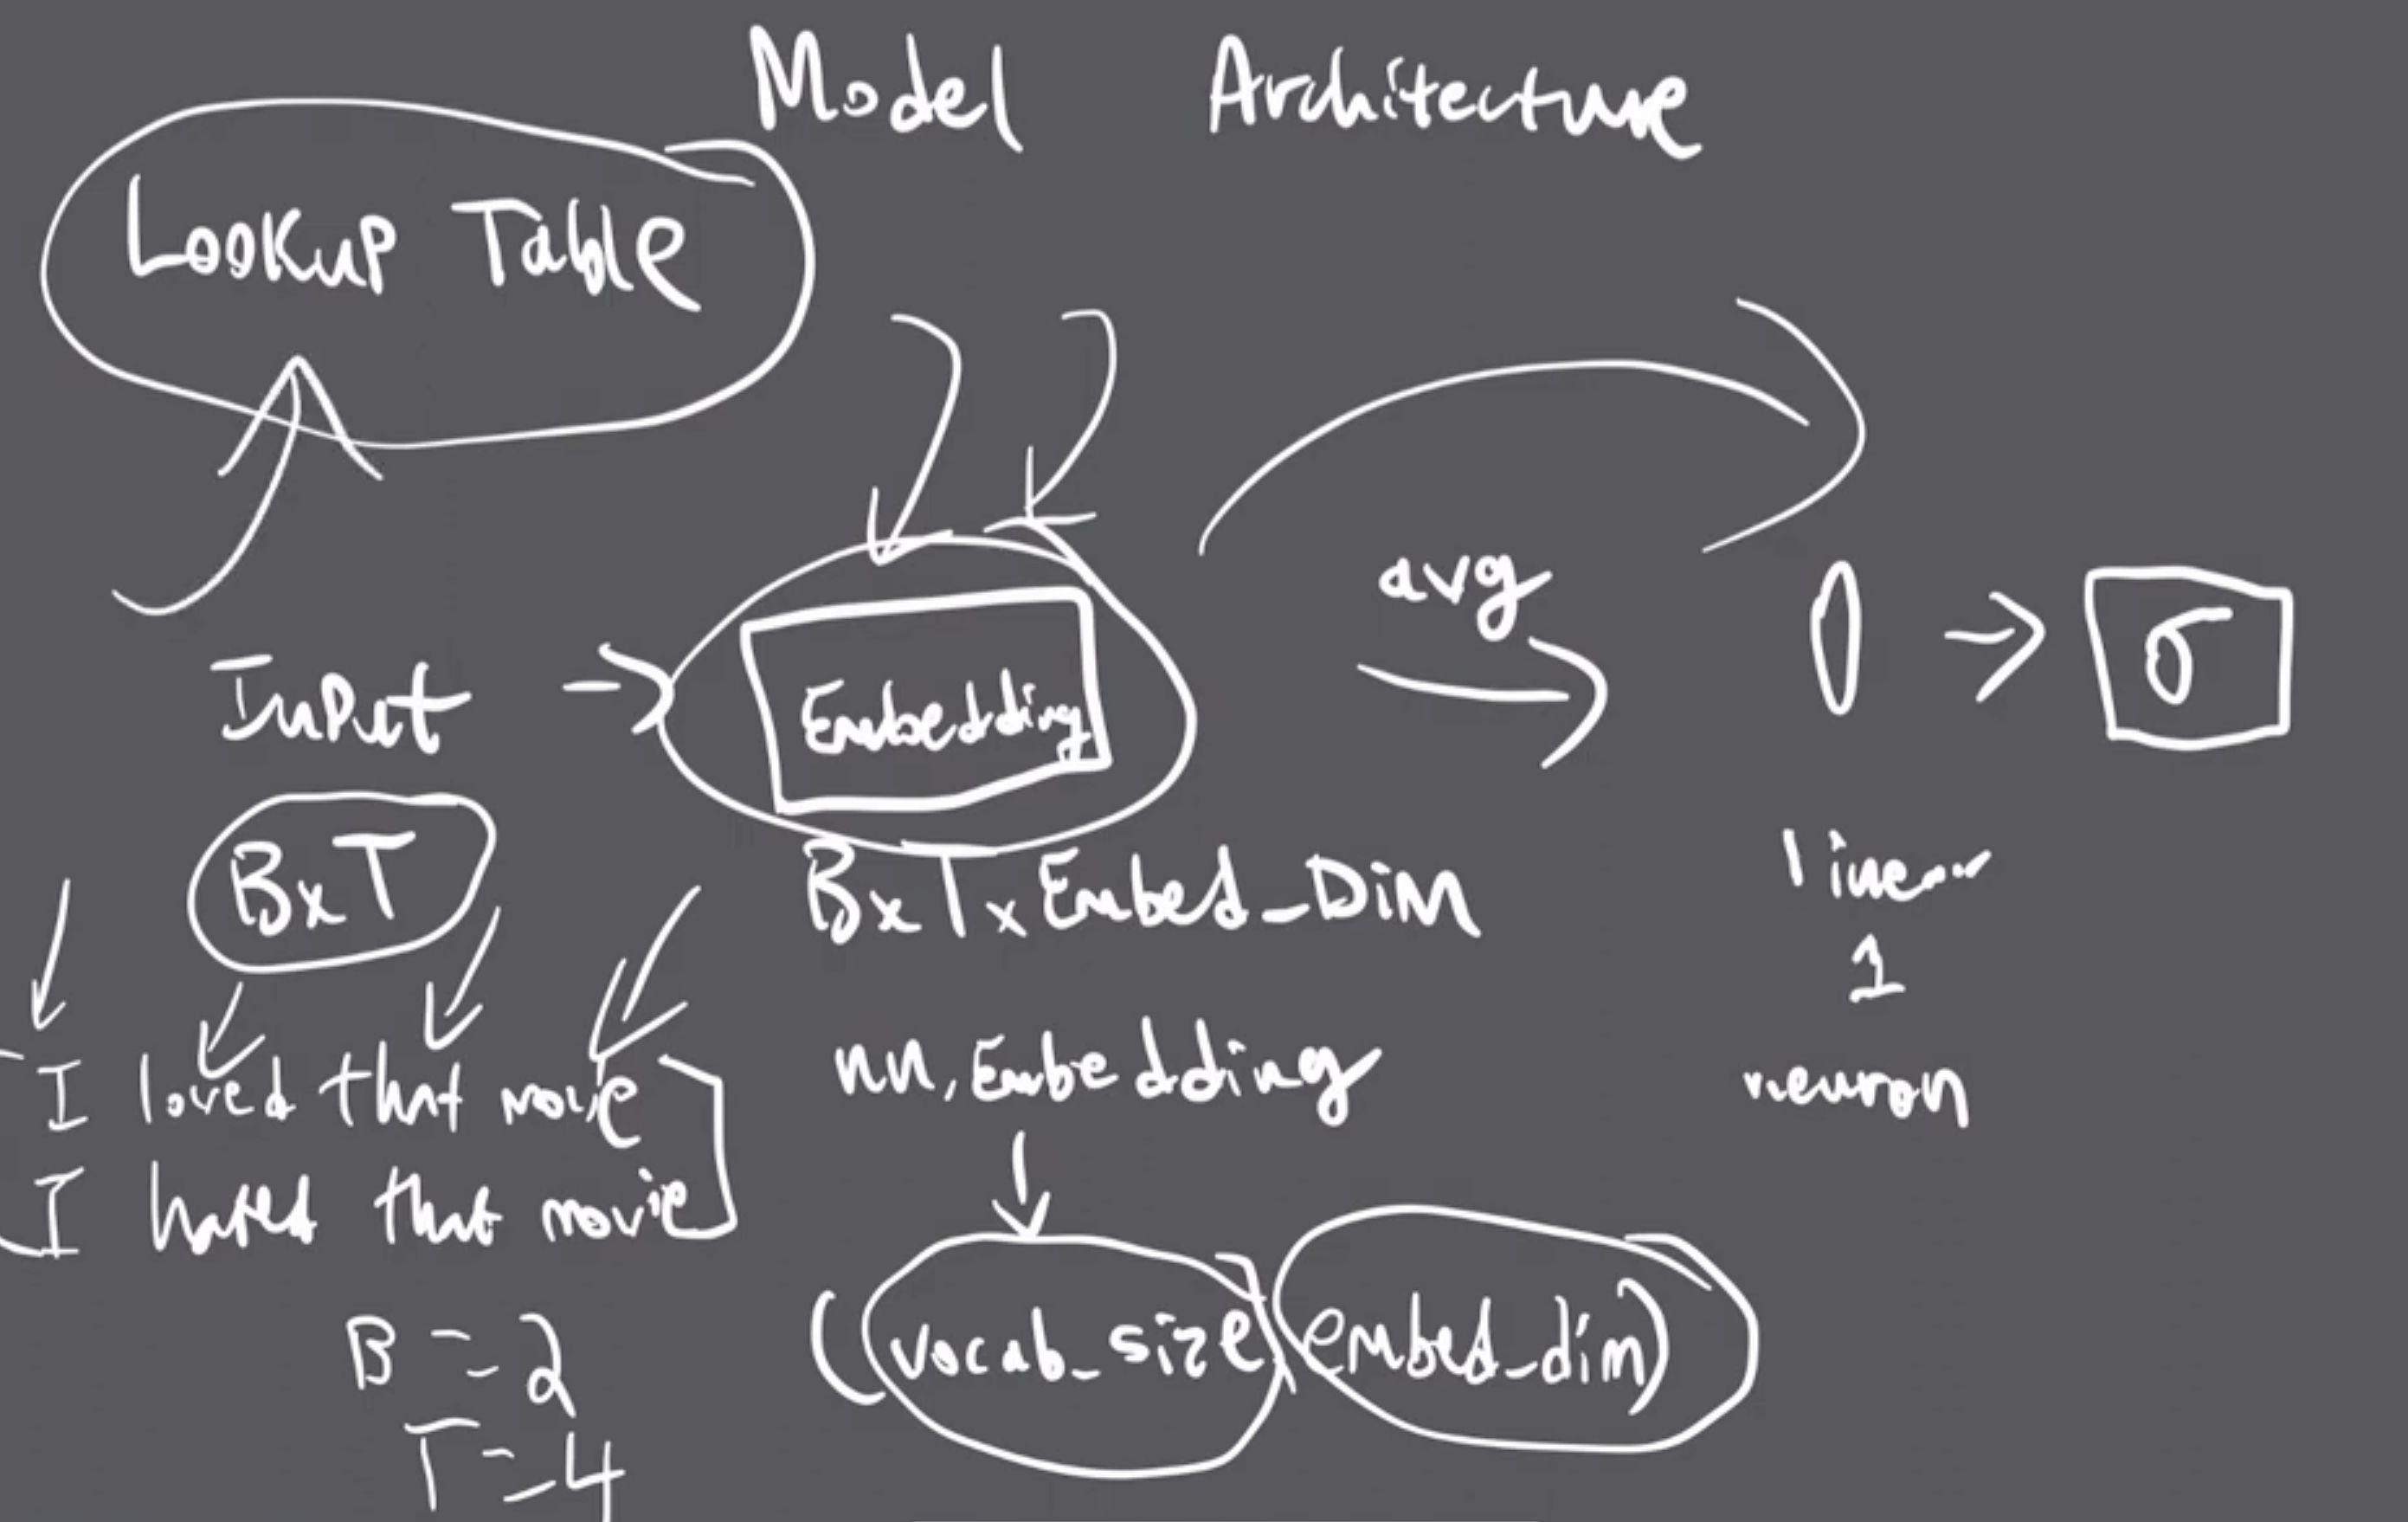 Model Architecture
Lookup Table
avg
Input → Embedding → σ
BxT
BxTxEmbed_Dim
linear
1
neuron
I loved that movie
I hated that movie
nn.Embedding
(vocab_size, embed_dim)
B = 2
T = 4